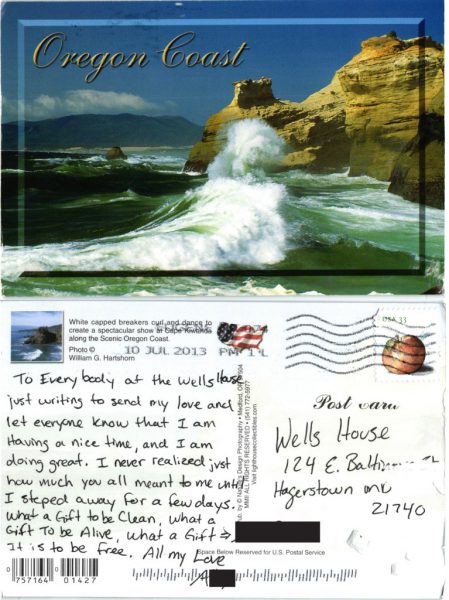 Oregon Coast
White capped breakers curl and dance to
create a spectacular show at Cape Kiwanda
along the Scenic Oregon Coast.
Photo ©
William G. Hartshorn
10 JUL 2013 PM 11
USA 33
Post Card
To Everybody at the Wells House
just writing to send my love and
let everyone know that I am
Having a nice time, and I am
doing great. I never realized just
how much you all meant to me until
I steped away for a few days.
What a Gift to be Clean, what a
Gift To Be Alive, what a Gift ⇒
It is to be free. All my Love
A
Wells House
124 E.
Hagerstown MD
21740
Design Photography • Medford, OR
(541) 772-
Visit lighthousecollectibles.com
Space Below Reserved for U.S. Postal Service
0 757164 01427 0